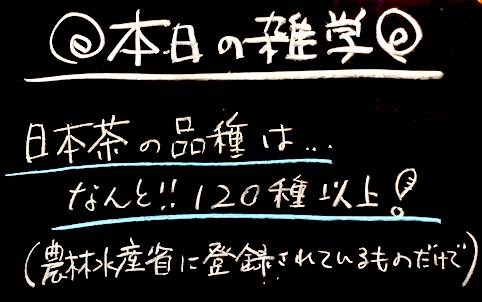 本日の雑学
日本茶の品種は...
なんと!!120種以上!
(農林水産省に登録されているものだけで)